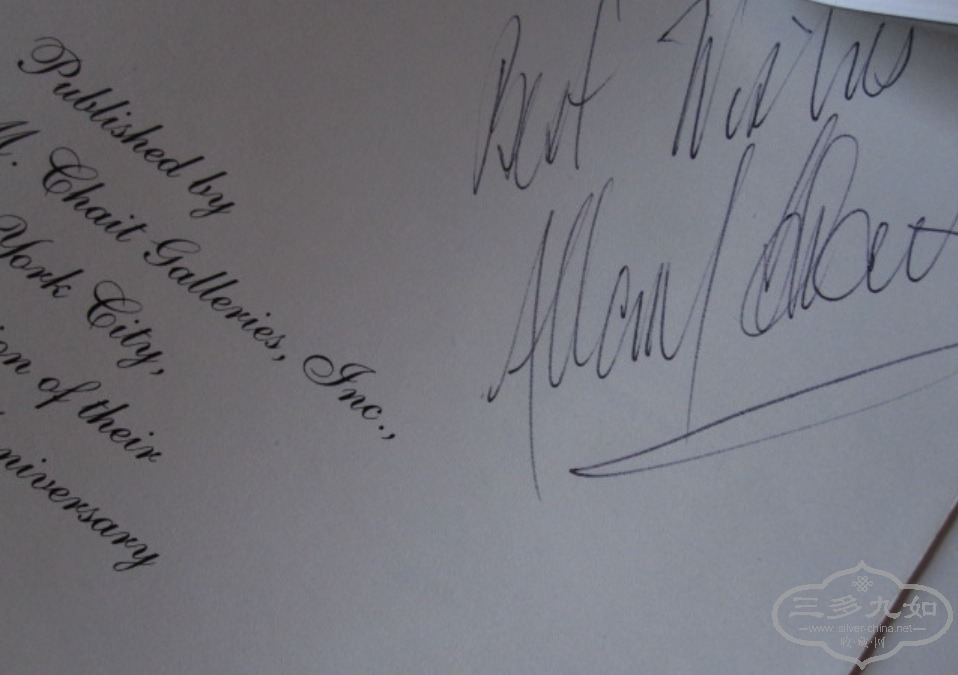 Published by
M. Chait Galleries, Inc.,
York City,
ion of their
niversary
Best Wishes
Allan
三多九如
www.silver-china.net
收·藏·网